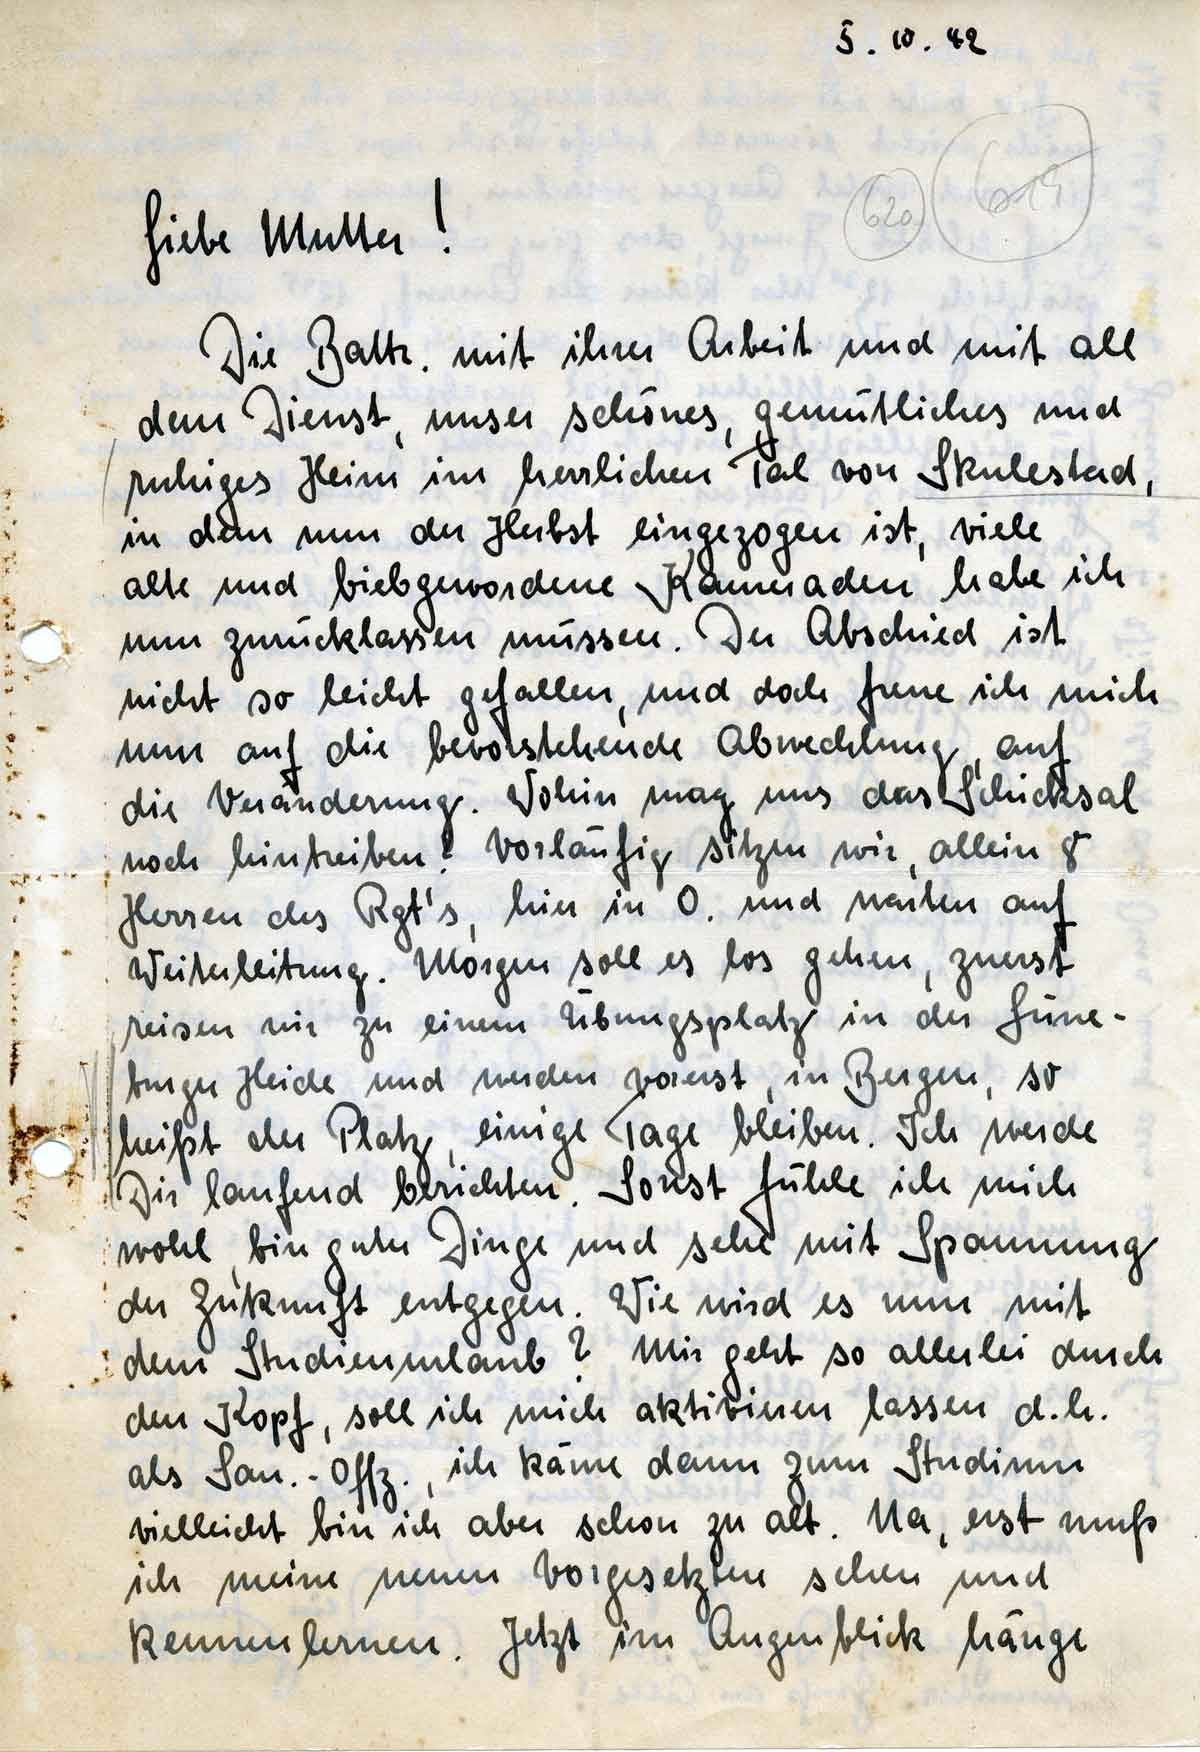 5. 10. 42
620
614
Liebe Mutter!
Die Battr. mit ihrer Arbeit und mit all
dem Dienst, unser schönes, gemütliches und
ruhiges Heim im herrlichen Tal von Skulestad,
in dem nun der Herbst eingezogen ist, viele
alte und liebgewordene Kameraden habe ich
nun zurücklassen müssen. Der Abschied ist
nicht so leicht gefallen, und doch freue ich mich
nun auf die bevorstehende Abwechlung, auf
die Veränderung. Wohin mag uns das Schicksal
noch hintreiben? Vorläufig sitzen wir, allein 8
Herren des Rgt's, hier in O. und warten auf
Weiterleitung. Morgen soll es los gehen, zuerst
reisen wir zu einem Übungsplatz in der Lüne-
burger Heide und werden vorerst, in Bergen, so
heißt der Platz, einige Tage bleiben. Ich werde
Dir laufend berichten. Sonst fühle ich mich
wohl, bin guter Dinge und sehe mit Spannung
der Zukunft entgegen. Wie wird es nun mit
dem Studienurlaub? Mir geht so allerlei durch
den Kopf, soll ich mich aktivieren lassen d.h.
als San.-Offz., ich käme dann zum Studium
vielleicht bin ich aber schon zu alt. Na, erst muß
ich meine neuen Vorgesetzten sehen und
kennenlernen. Jetzt im Augenblick hänge